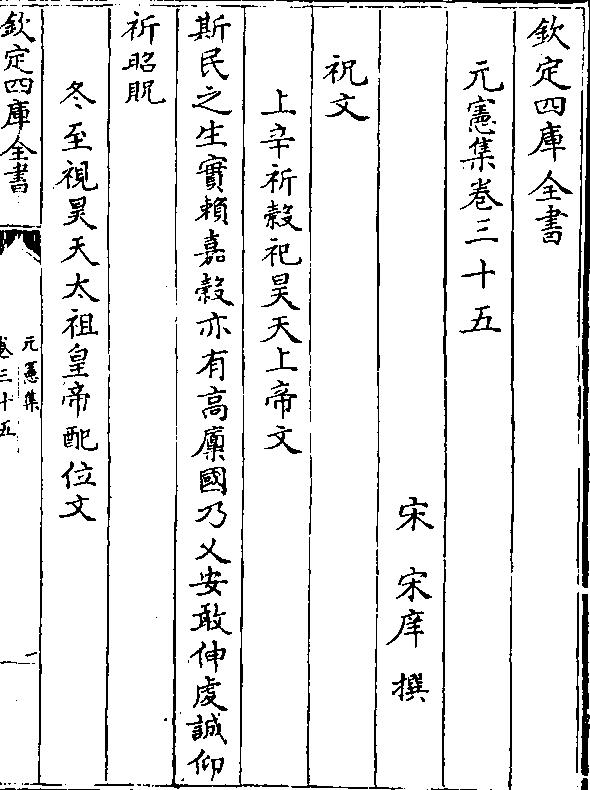 欽定四庫全書
元憲集卷三十五
宋 宋庠 撰
祝文
上辛祈穀祀昊天上帝文
斯民之生實賴嘉穀亦有高廩國乃乂安敢伸虔誠仰
祈昭貺
冬至視昊天太祖皇帝配位文
欽定四庫全書
元憲集
卷三十五
一